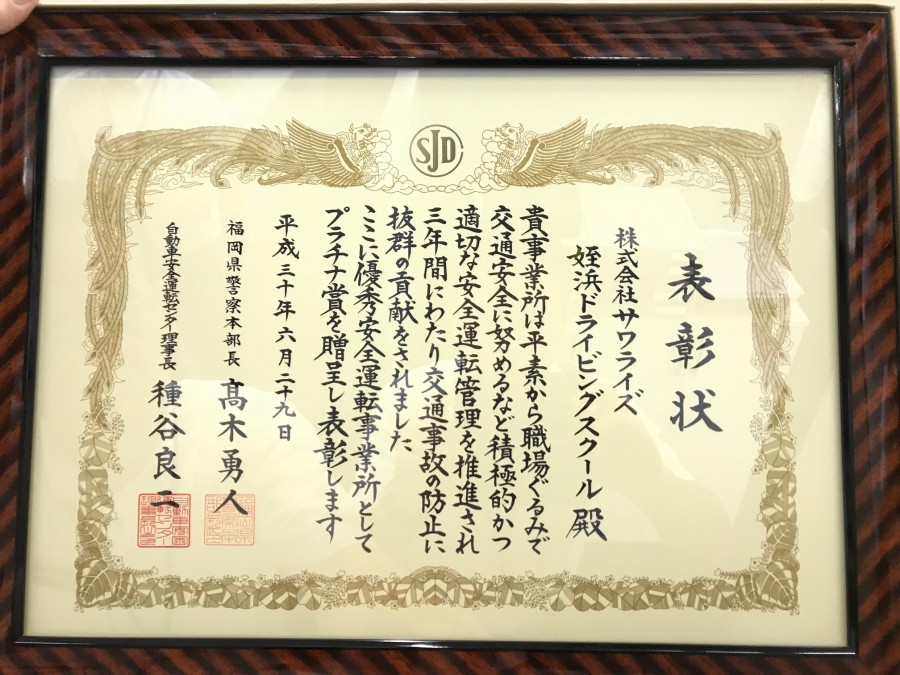 SJD
表彰状
株式会社サワライズ
姪浜ドライビングスクール 殿
貴事業所は平素から職場ぐるみで
交通安全に努めるなど積極的かつ
適切な安全運転管理を推進され
三年間にわたり交通事故の防止に
抜群の貢献をされました
ここに優秀安全運転事業所として
プラチナ賞を贈呈し表彰します
平成三十年六月二十九日
福岡県警察本部長 髙木勇人
自動車安全運転センター理事長 種谷良二